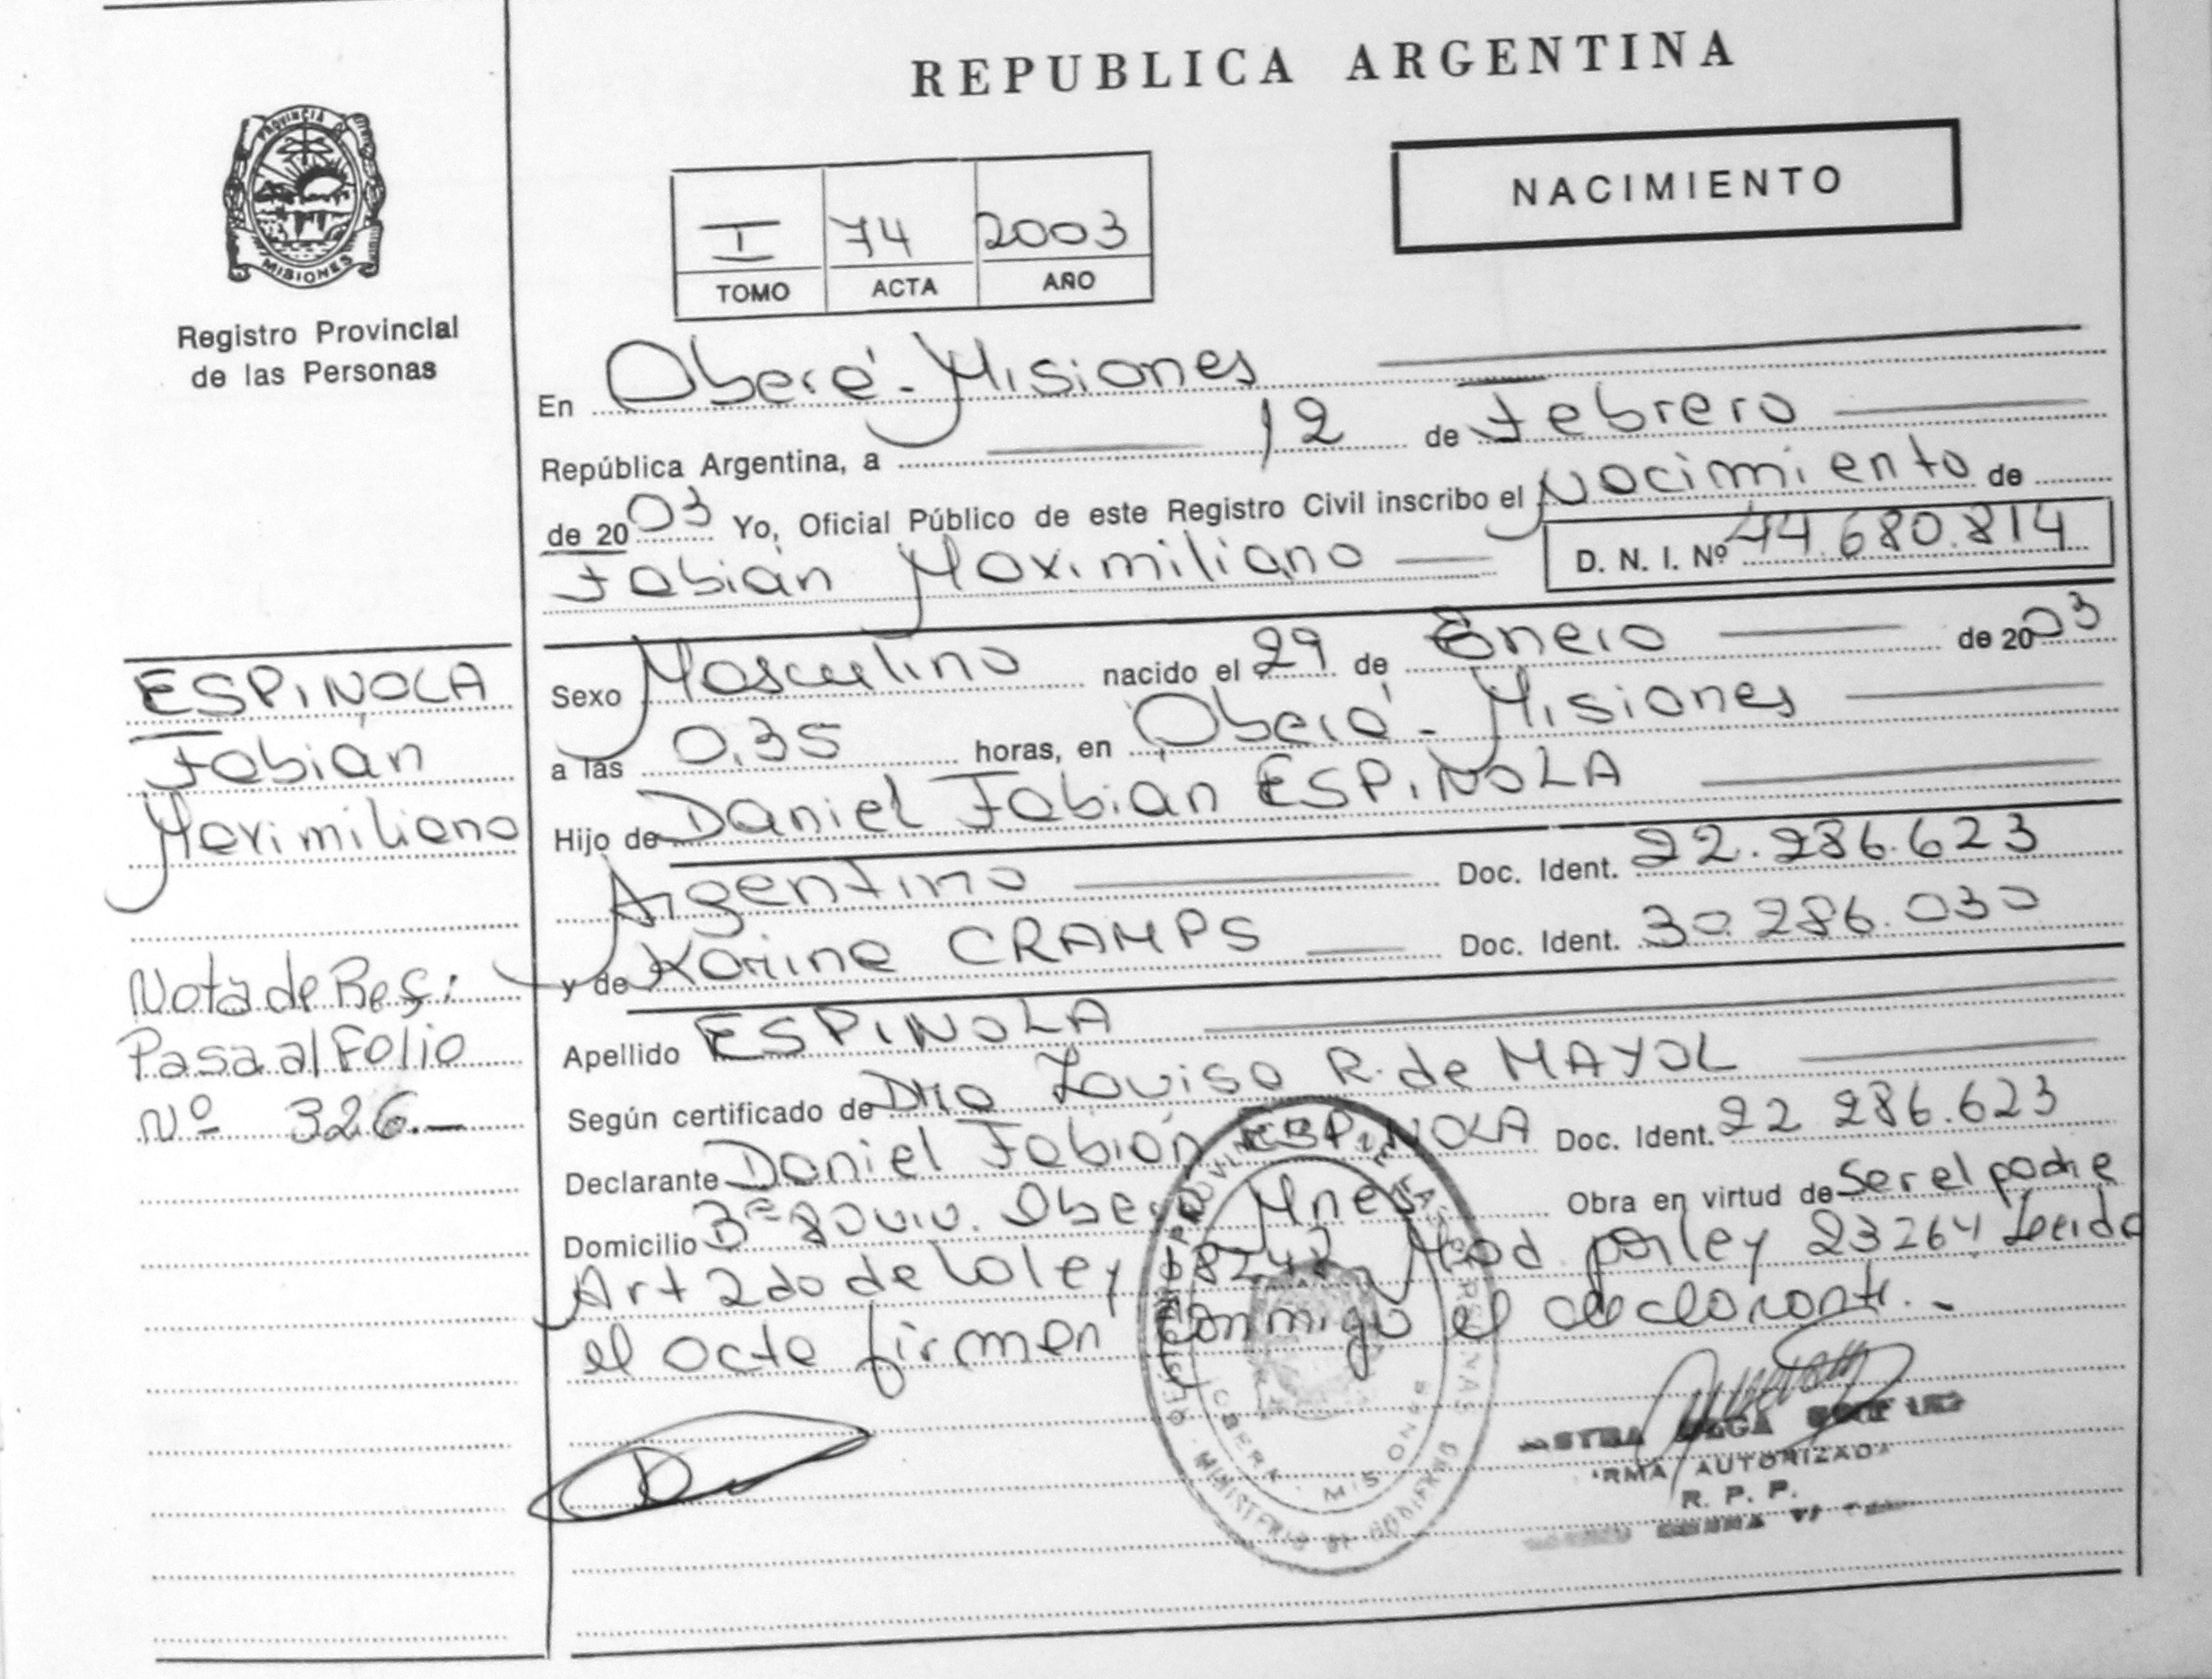 REPUBLICA ARGENTINA
PROVINCIA DE
MISIONES
Registro Provincial
de las Personas
NACIMIENTO
I 74 2003
TOMO ACTA AÑO
En Oberá - Misiones
República Argentina, a 12 de Febrero
de 2003 Yo, Oficial Público de este Registro Civil inscribo el Nacimiento de
Fabián Maximiliano D. N. I. Nº 44.680.814
ESPINOLA
Fabián
Maximiliano
Nota de Ref:
Pasa al Folio
Nº 326.-
Sexo Masculino nacido el 29 de Enero de 2003
a las 0,35 horas, en Oberá - Misiones
Hijo de Daniel Fabian ESPINOLA
Argentino Doc. Ident. 22.286.623
y de Karina CRAMPS Doc. Ident. 30.286.030
Apellido ESPINOLA
Según certificado de Dra Louisa R. de MAYOL
Declarante Daniel Fabián ESPINOLA Doc. Ident. 22 286.623
Domicilio Oberá Mnes Obra en virtud de Ser el padre
Art 2do de la ley 18248 Mod. por ley 23264 Leida
el acta firman conmigo el declarante.-
OBERA MISIONES
MINISTERIO DE GOBIERNO
OLGA
FIRMA AUTORIZADA
R. P. P.